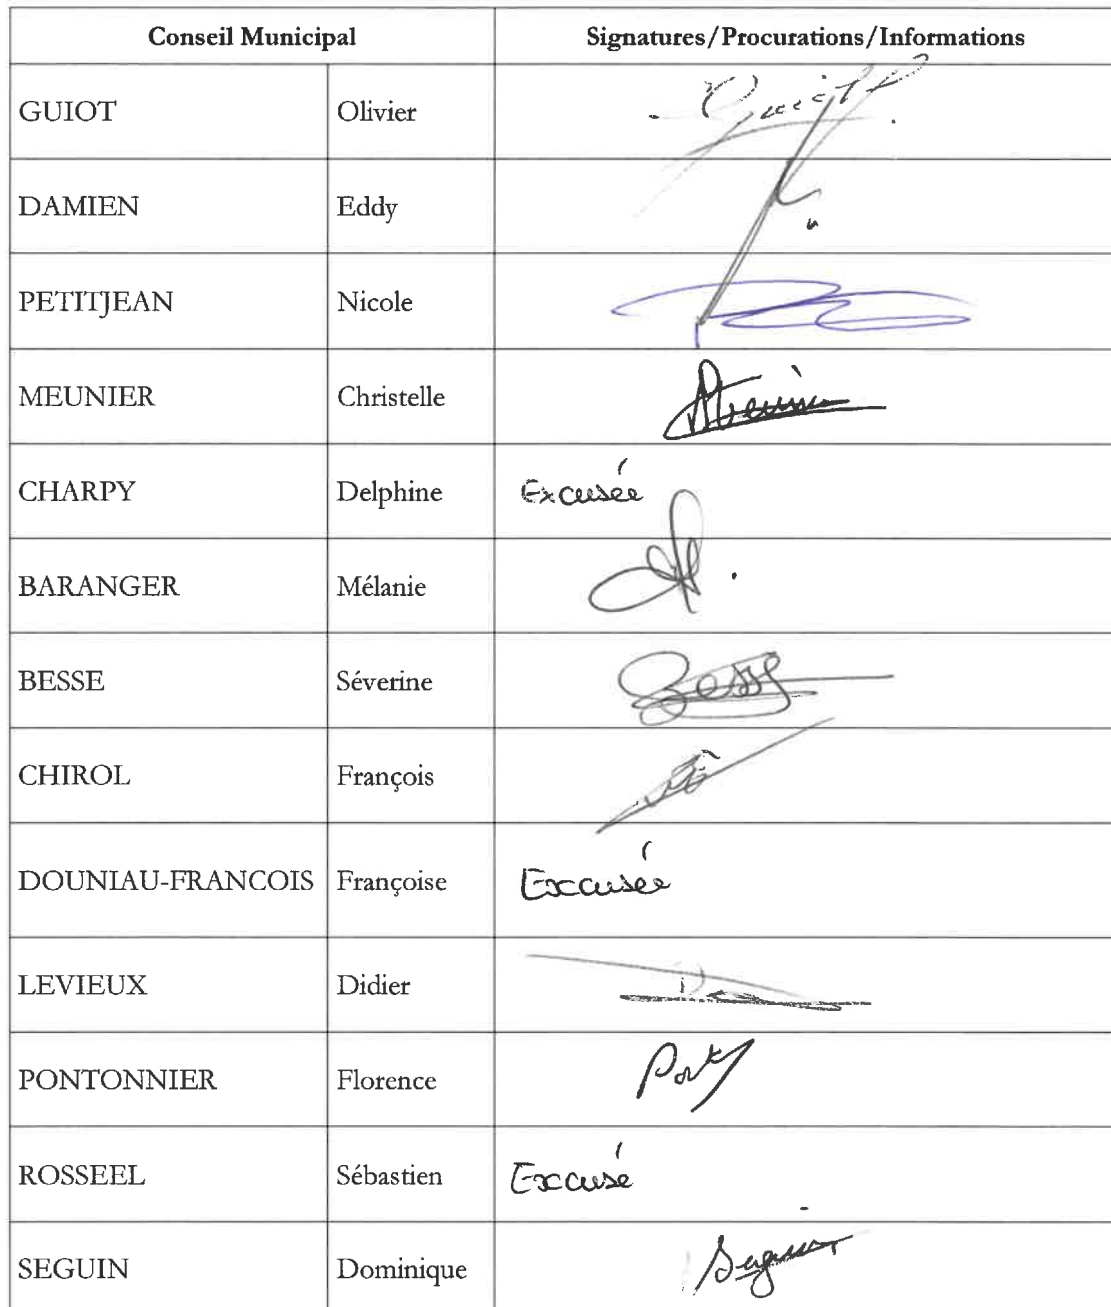 Conseil Municipal Signatures/Procurations/Informations
GUIOT Olivier Guiot
DAMIEN Eddy
PETITJEAN Nicole
MEUNIER Christelle
CHARPY Delphine Excusée
BARANGER Mélanie
BESSE Séverine Besse
CHIROL François
DOUNIAU-FRANCOIS Françoise Excusée
LEVIEUX Didier
PONTONNIER Florence
ROSSEEL Sébastien Excusé
SEGUIN Dominique Seguin